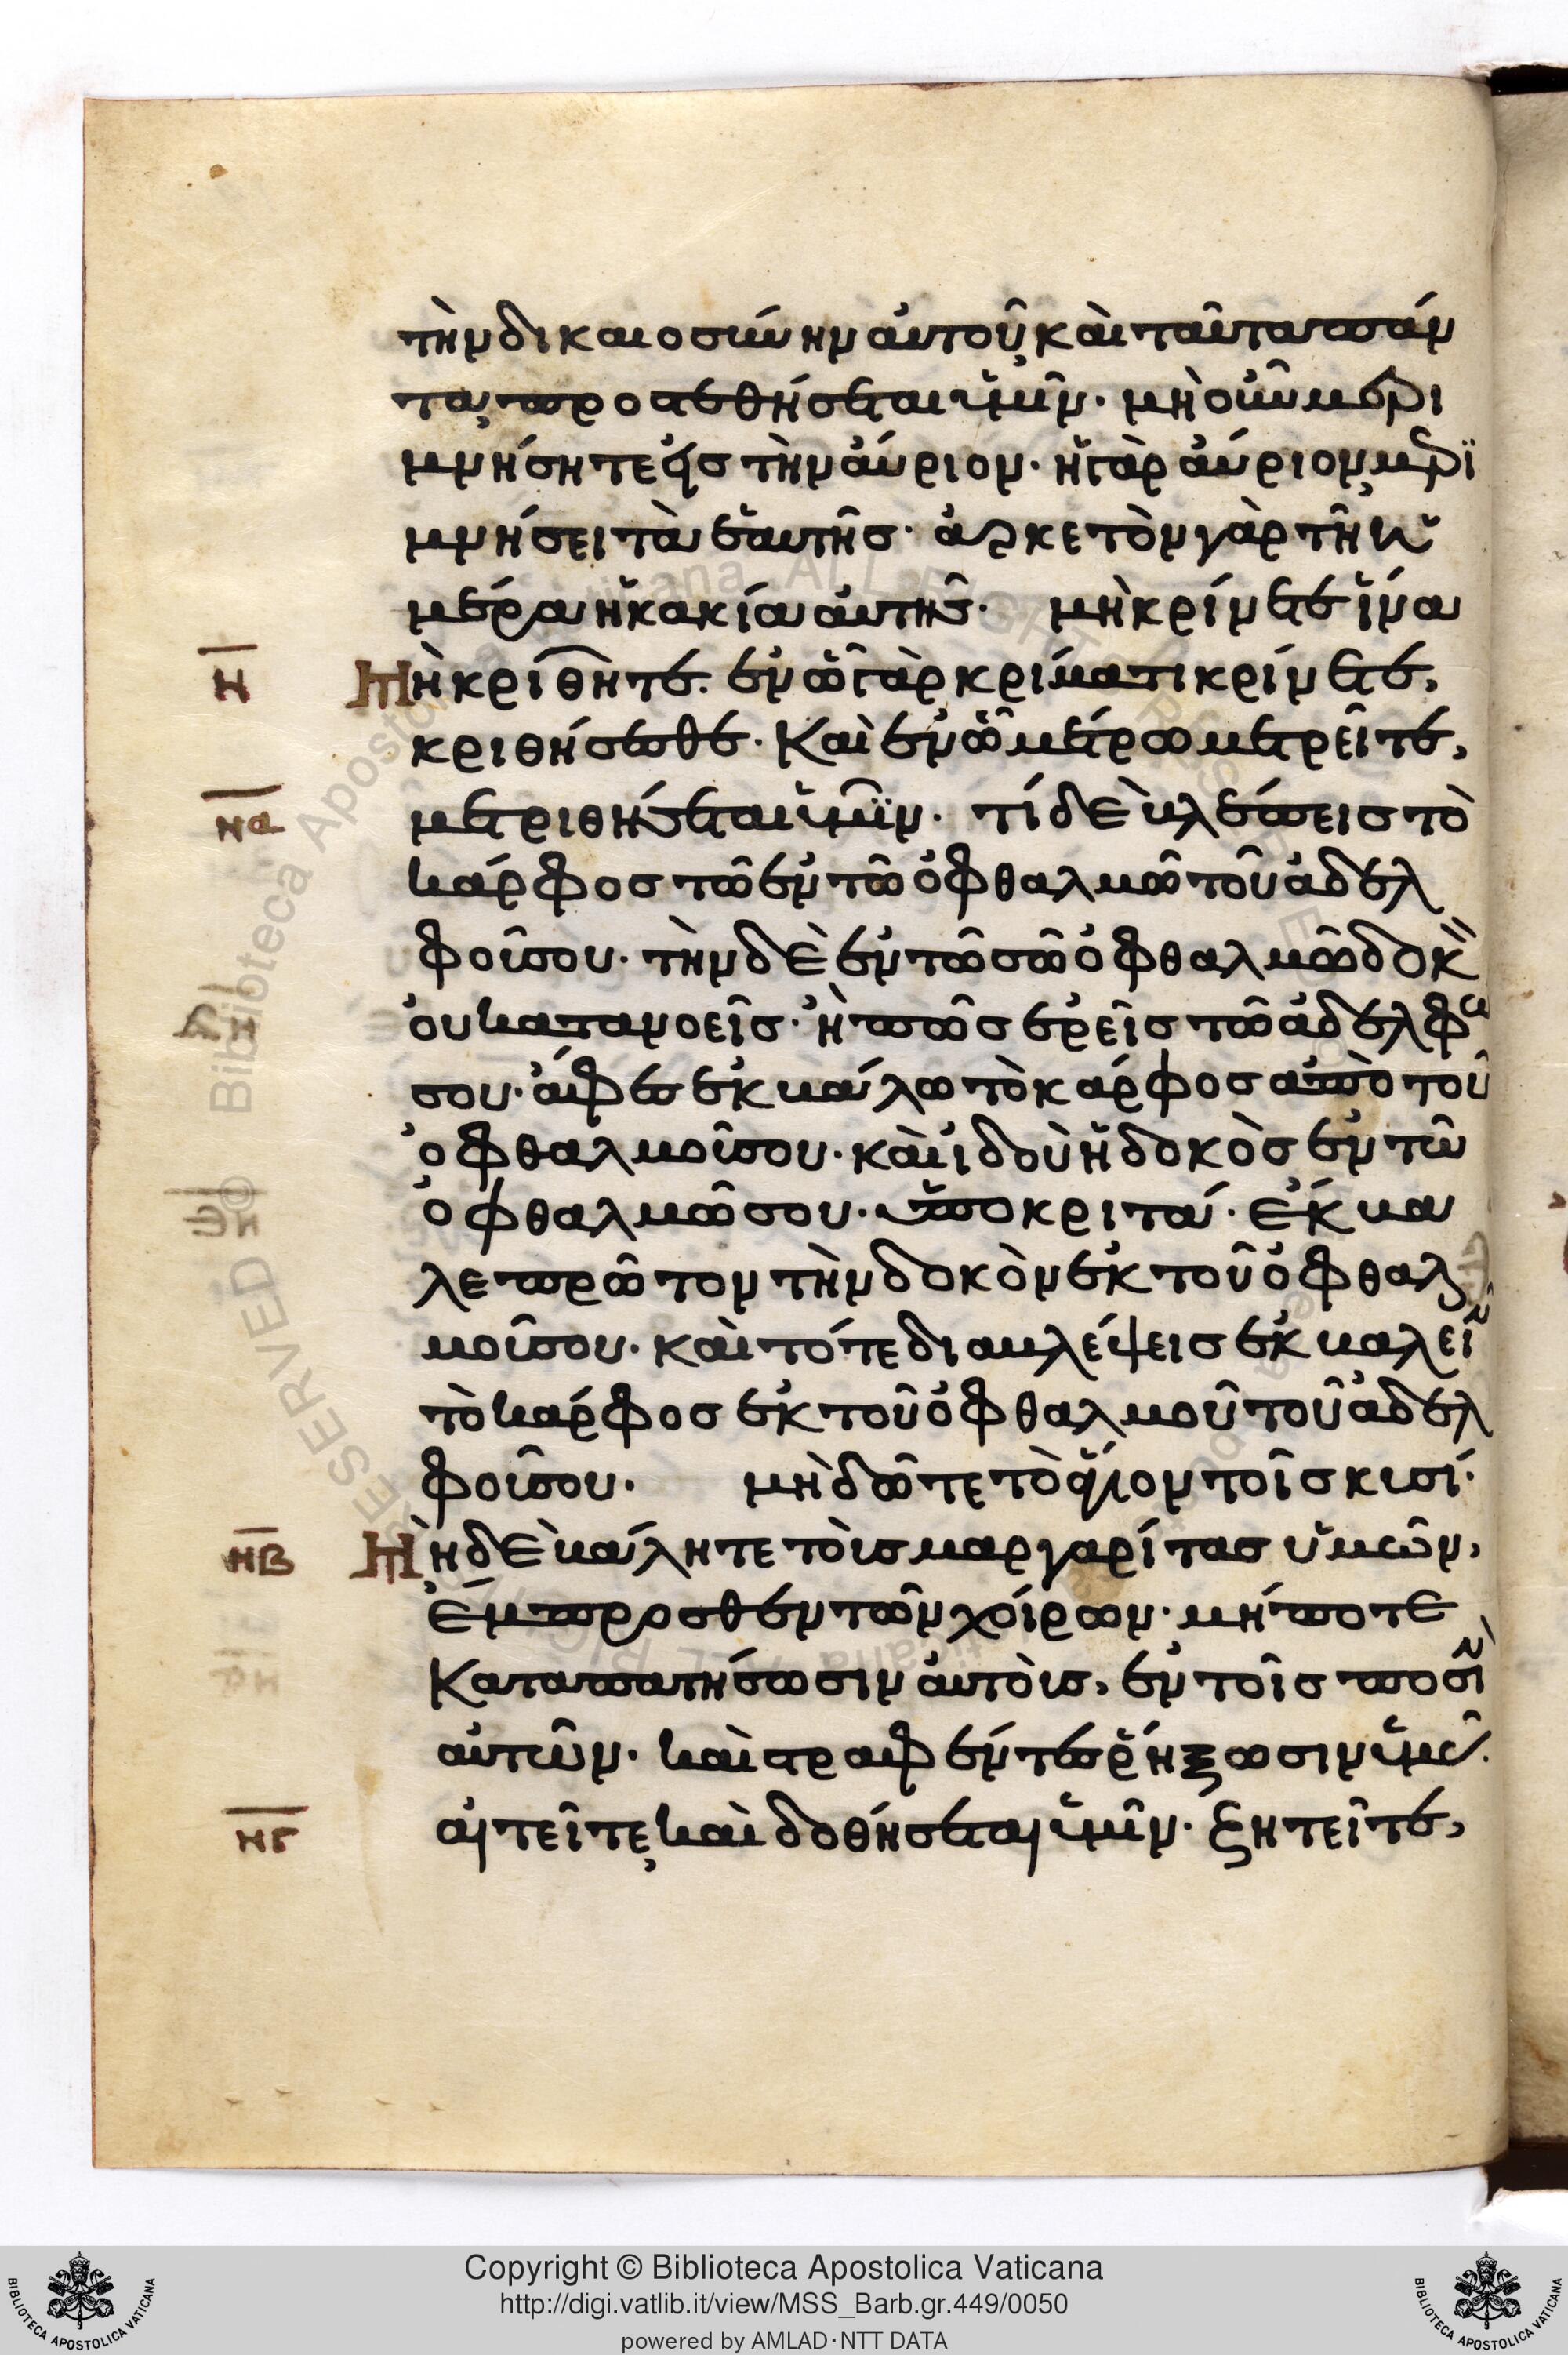 τὴν δικαιοσύνην αὐτοῦ, καὶ ταῦτα πάν
τα, προστεθήσεται ὑμῖν· μὴ οὖν μερι
μνήσητε εἰς τὴν αὔριον· ἡ γὰρ αὔριον, μερϊ
μνήσει τὰ ἑαυτῆς· ἀρκετὸν γὰρ τῆ ἡ
μέρα ἡ κακία αὐτῆς· μὴ κρίνετε ἵνα
Μὴ κριθῆτε. ἐν ὧ γὰρ κρίματι κρίνετε,
κριθήσεσθε· Καὶ ἐν ὧ μέτρω μετρεῖτε,
μετριθήσεται ὑμῖν· τί δὲ βλέπεις τὸ
κάρφος τῶ ἐν τῶ ὀφθαλμῶ τοῦ ἀδελ
φοῦ σου· τὴν δὲ ἐν τῶ σῶ ὀφθαλμῶ δοκὸν
οὐ κατανοεῖς· ἢ πῶς ἐρεῖς τῶ ἀδελφῶ
σου· ἄφες ἐκβάλω τὸ κάρφος ἀπὸ τοῦ
ὀφθαλμοῦ σου· καὶ ἰδοὺ ἡ δοκὸς ἐν τῶ
ὀφθαλμῶ σου· ὑποκριτά· ἔκβα
λε πρῶτον τὴν δοκὸν ἐκ τοῦ ὀφθαλ
μοῦ σου· καὶ τότε διαβλέψεις ἐκβαλεῖν
τὸ κάρφος ἐκ τοῦ ὀφθαλμοῦ τοῦ ἀδελ
φοῦ σου· μὴ δῶτε τὸ ἅγιον τοῖς κυσί·
Μὴδὲ βάλητε τοὺς μαργαρίτας ὑμῶν,
ἔμπροσθεν τῶν χοίρων· μήποτε
Καταπατήσωσιν αὐτοὺς, ἐν τοῖς ποσὶν
αὐτῶν· καὶ στραφέντες ῥήξωσιν ὑμᾶς.
αἰτεῖτε, καὶ δοθήσεται ὑμῖν· ζητεῖτε,
Η
ΗΑ
ΗΒ
ΗΓ
Copyright © Biblioteca Apostolica Vaticana
http://digi.vatlib.it/view/MSS_Barb.gr.449/0050
powered by AMLAD·NTT DATA
BIBLIOTECA APOSTOLICA VATICANA
BIBLIOTECA APOSTOLICA VATICANA